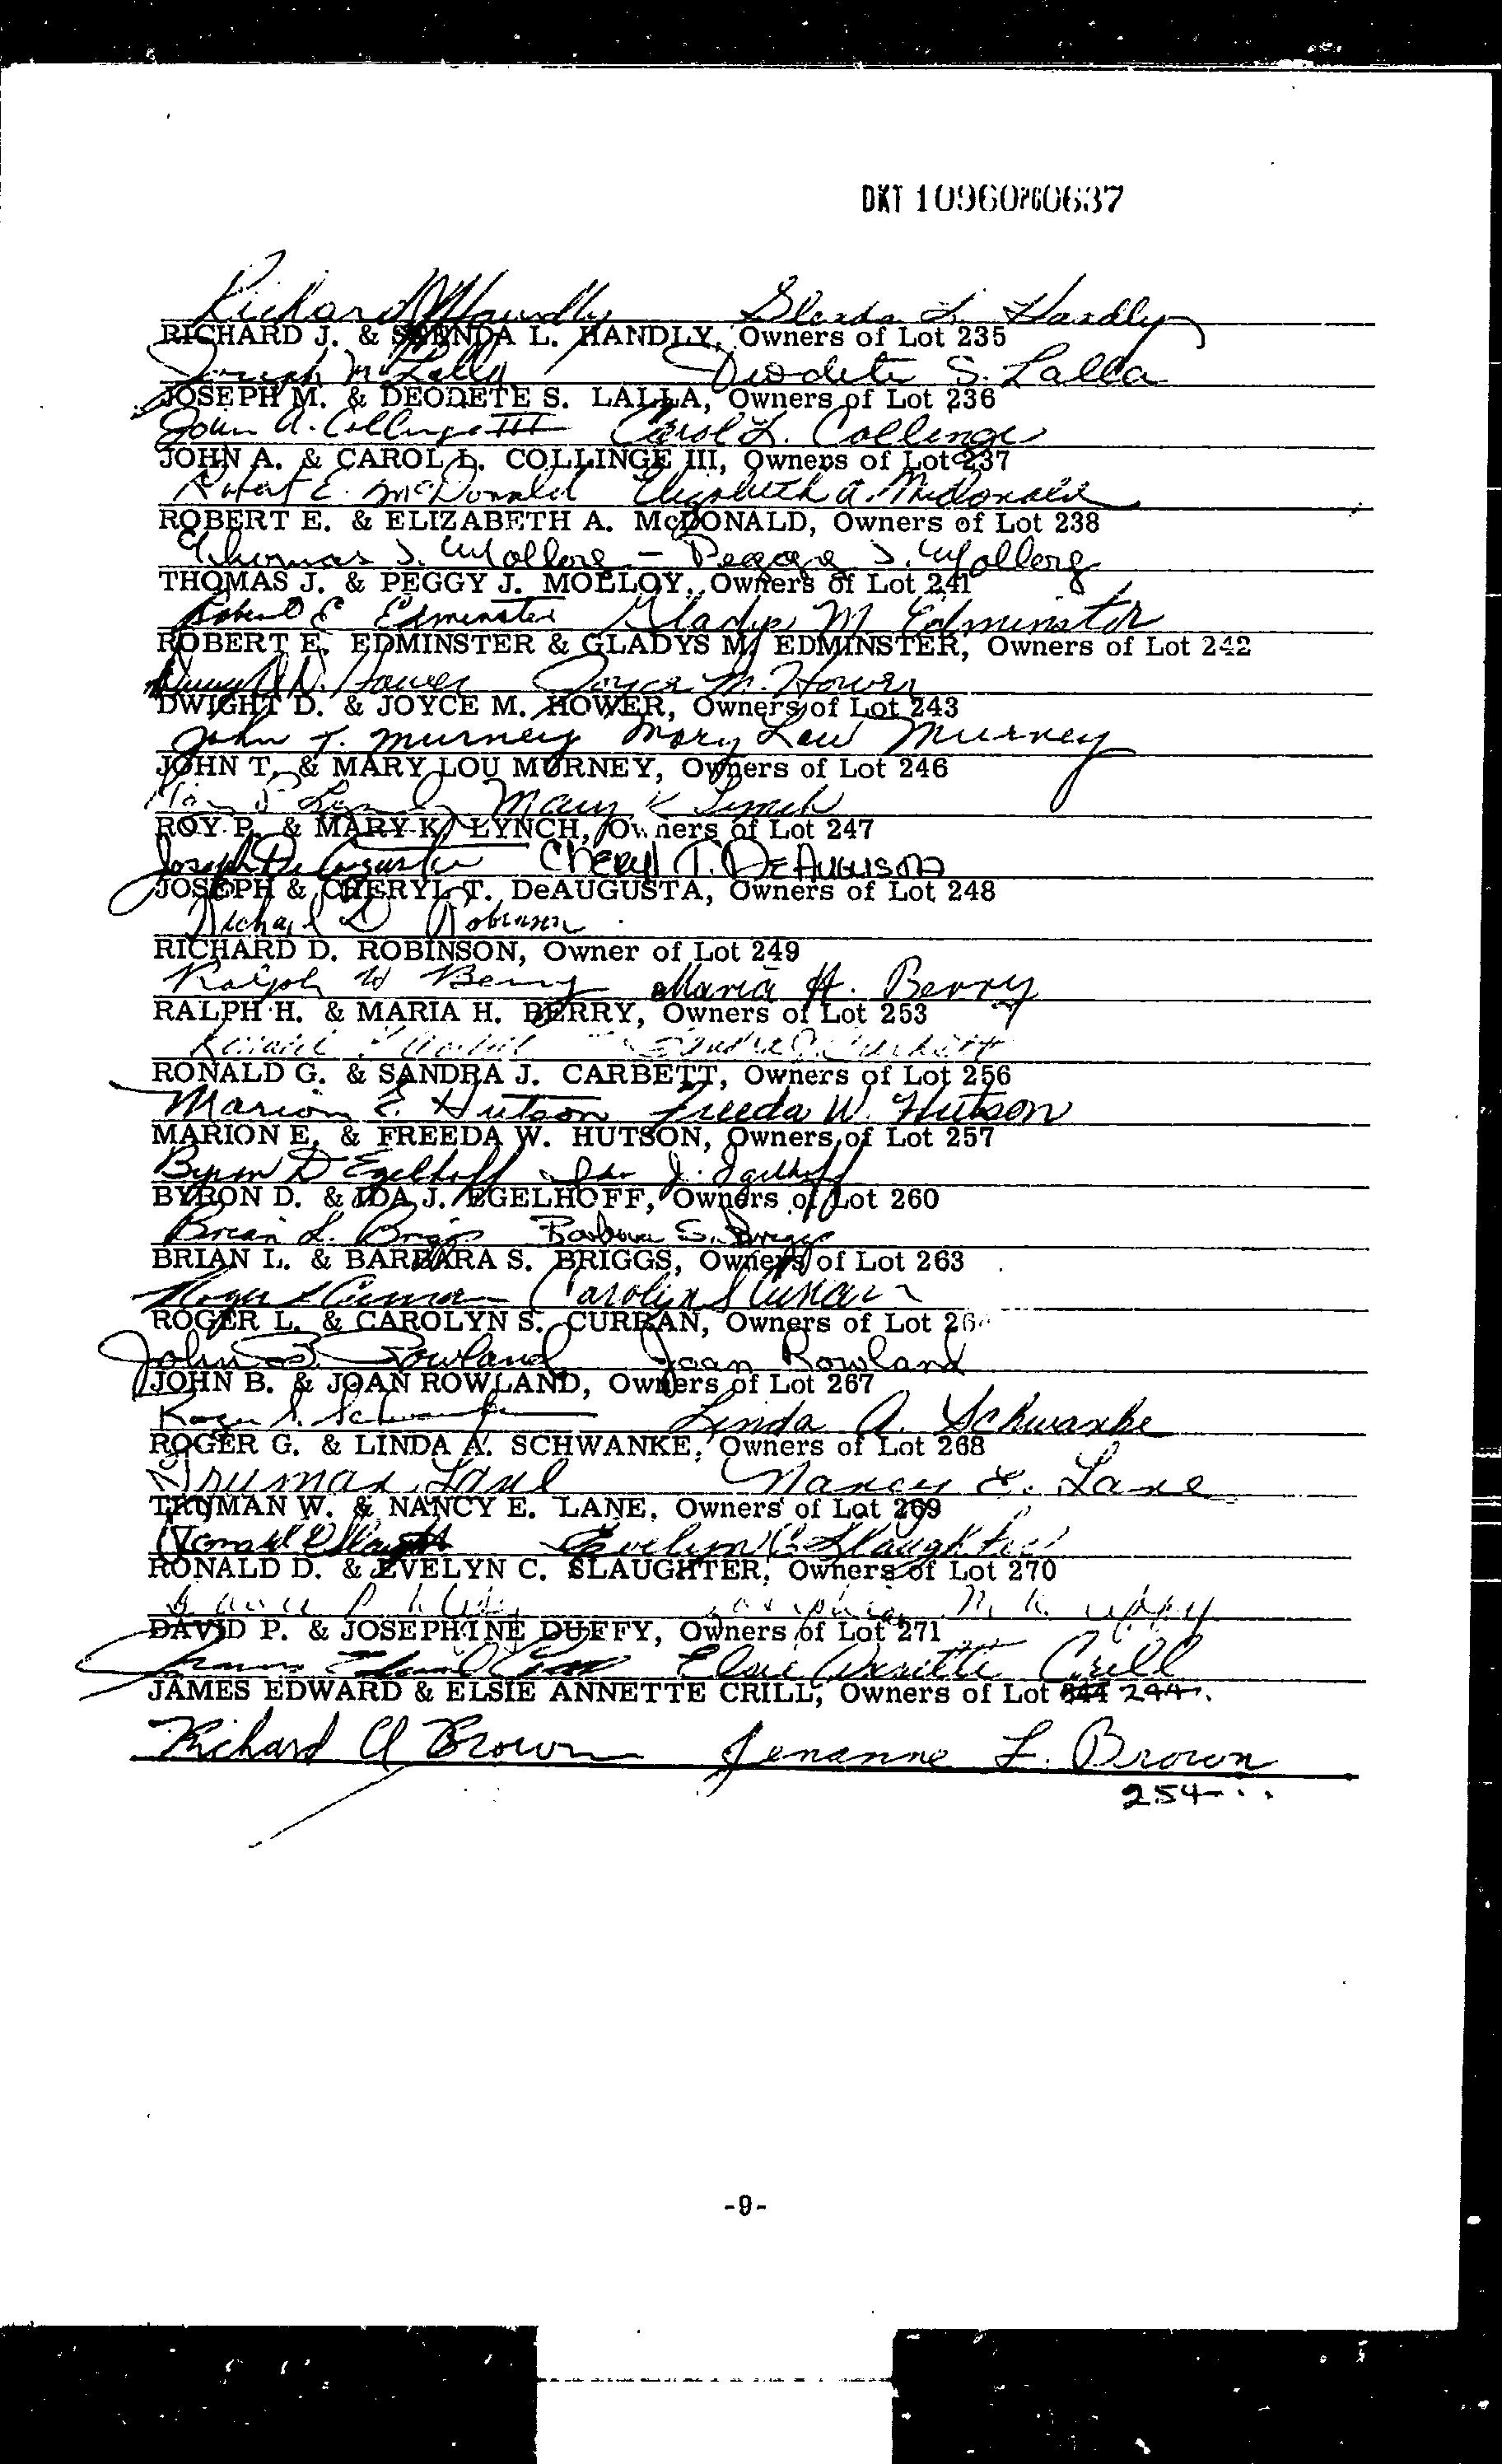 DKT 10960PG0637
Richard J Handly Glenda L. Handly
RICHARD J. & GLENDA L. HANDLY, Owners of Lot 235
Joseph M. Lalla Deodete S. Lalla
JOSEPH M. & DEODETE S. LALLA, Owners of Lot 236
John A. Collinge III Carol L. Collinge
JOHN A. & CAROL L. COLLINGE III, Owners of Lot 237
Robert E. McDonald Elizabeth A. McDonald
ROBERT E. & ELIZABETH A. McDONALD, Owners of Lot 238
Thomas J. Molloy - Peggy J. Molloy
THOMAS J. & PEGGY J. MOLLOY, Owners of Lot 241
Robert E Edminster Gladys M Edminster
ROBERT E. EDMINSTER & GLADYS M. EDMINSTER, Owners of Lot 242
Dwight D. Hower Joyce M. Hower
DWIGHT D. & JOYCE M. HOWER, Owners of Lot 243
John T. Murney Mary Lou Murney
JOHN T. & MARY LOU MURNEY, Owners of Lot 246
Roy P. Lynch Mary K Lynch
ROY P. & MARY K. LYNCH, Owners of Lot 247
Joseph DeAugusta Cheryl T. DeAugusta
JOSEPH & CHERYL T. DeAUGUSTA, Owners of Lot 248
Richard D Robinson
RICHARD D. ROBINSON, Owner of Lot 249
Ralph W Berry Maria H. Berry
RALPH H. & MARIA H. BERRY, Owners of Lot 253
RONALD G. & SANDRA J. CARBETT, Owners of Lot 256
Marion E. Hutson Freeda W. Hutson
MARION E. & FREEDA W. HUTSON, Owners of Lot 257
Byron D Egelhoff Ida J. Egelhoff
BYRON D. & IDA J. EGELHOFF, Owners of Lot 260
Brian L. Briggs Barbara S. Briggs
BRIAN L. & BARBARA S. BRIGGS, Owners of Lot 263
Roger L Curran Carolyn S Curran
ROGER L. & CAROLYN S. CURRAN, Owners of Lot
John B. Rowland Joan Rowland
JOHN B. & JOAN ROWLAND, Owners of Lot 267
Roger G. Schwanke Linda A. Schwanke
ROGER G. & LINDA A. SCHWANKE, Owners of Lot 268
Truman Lane Nancy E. Lane
TRUMAN W. & NANCY E. LANE, Owners of Lot 269
Ronald D Slaughter Evelyn C. Slaughter
RONALD D. & EVELYN C. SLAUGHTER, Owners of Lot 270
DAVID P. & JOSEPHINE DUFFY, Owners of Lot 271
James Edward Crill Elsie Annette Crill
JAMES EDWARD & ELSIE ANNETTE CRILL, Owners of Lot 244
Richard A Brown Jenanne L. Brown
254
-9-